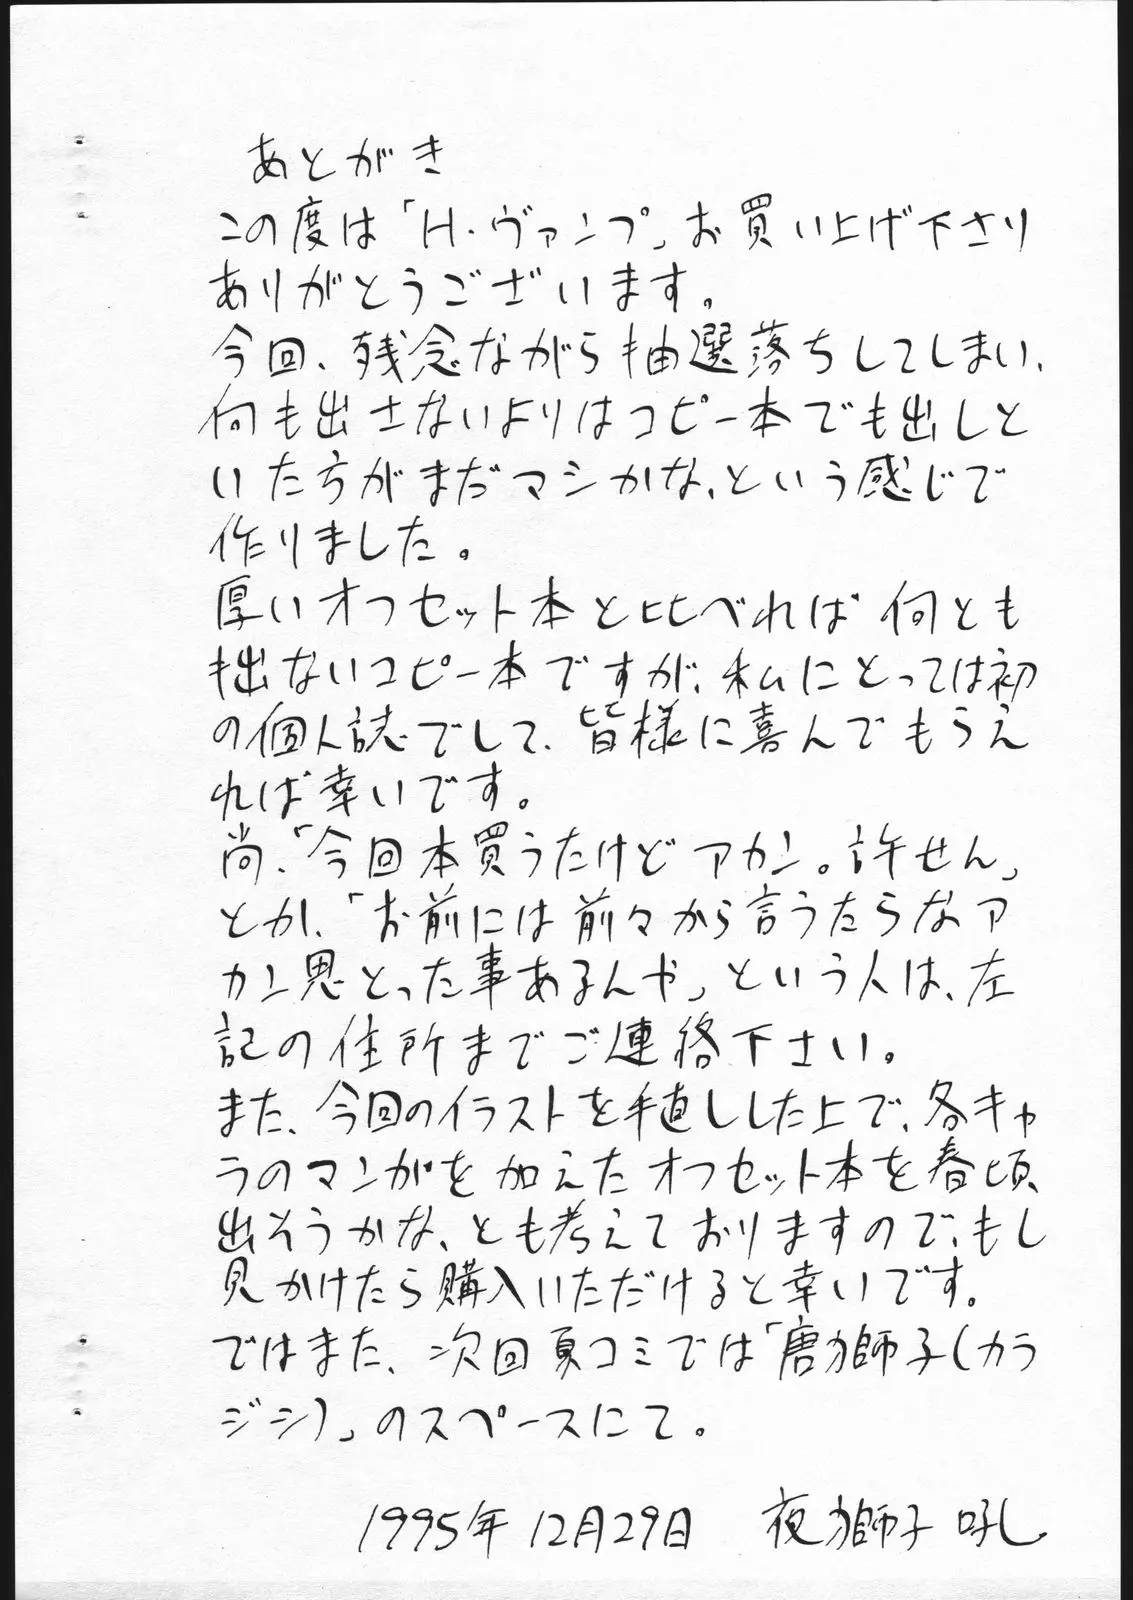 あとがき
この度は「H・ヴァンプ」お買い上げ下さり
ありがとうございます。
今回、残念ながら抽選落ちしてしまい、
何も出さないよりはコピー本でも出しと
いた方がまだマシかな、という感じで
作りました。
厚いオフセット本と比べれば何とも
拙ないコピー本ですが、私にとっては初
の個人誌でして、皆様に喜んでもらえ
れば幸いです。
尚、「今回本買うたけどアカン。許せん」
とか、「お前には前々から言うたらなア
カン思とった事あるんや」という人は、左
記の住所までご連絡下さい。
また、今回のイラストを手直しした上で、各キャ
ラのマンガを加えたオフセット本を春頃、
出そうかな、とも考えておりますので、もし
見かけたら購入いただけると幸いです。
ではまた、次回夏コミでは「唐獅子(カラ
ジシ)」のスペースにて。
1995年12月29日 夜獅子 吼し